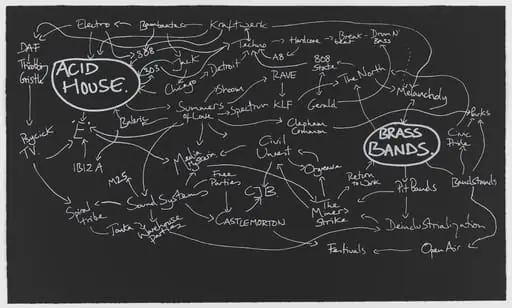 Electro
Bambaataa
Kraftwerk
DAF
Throbbing
Gristle
808
303
Jack
Techno
Hardcore
Break-
beat
Drum N'
Bass
ACID
HOUSE.
Detroit
A8
808
State
Chicago
Shoom
RAVE
The North
Melancholy
Summer
of Love
Spectrum
KLF
Gerald
Parks
Psychick
TV
.E.
Balearic
Clapham
Common
BRASS
BANDS.
Civic
Pride
IBIZA
Media
Civil
Unrest
Orgreave
M25
Free
Parties
Return
to Work
Pit Bands
Bandstands
Spiral
Tribe
Sound System
C.J.B.
Tonka
Warehouse
Parties
CASTLEMORTON
The
Miners
Strike
Deindustrialization
Festivals
Open Air